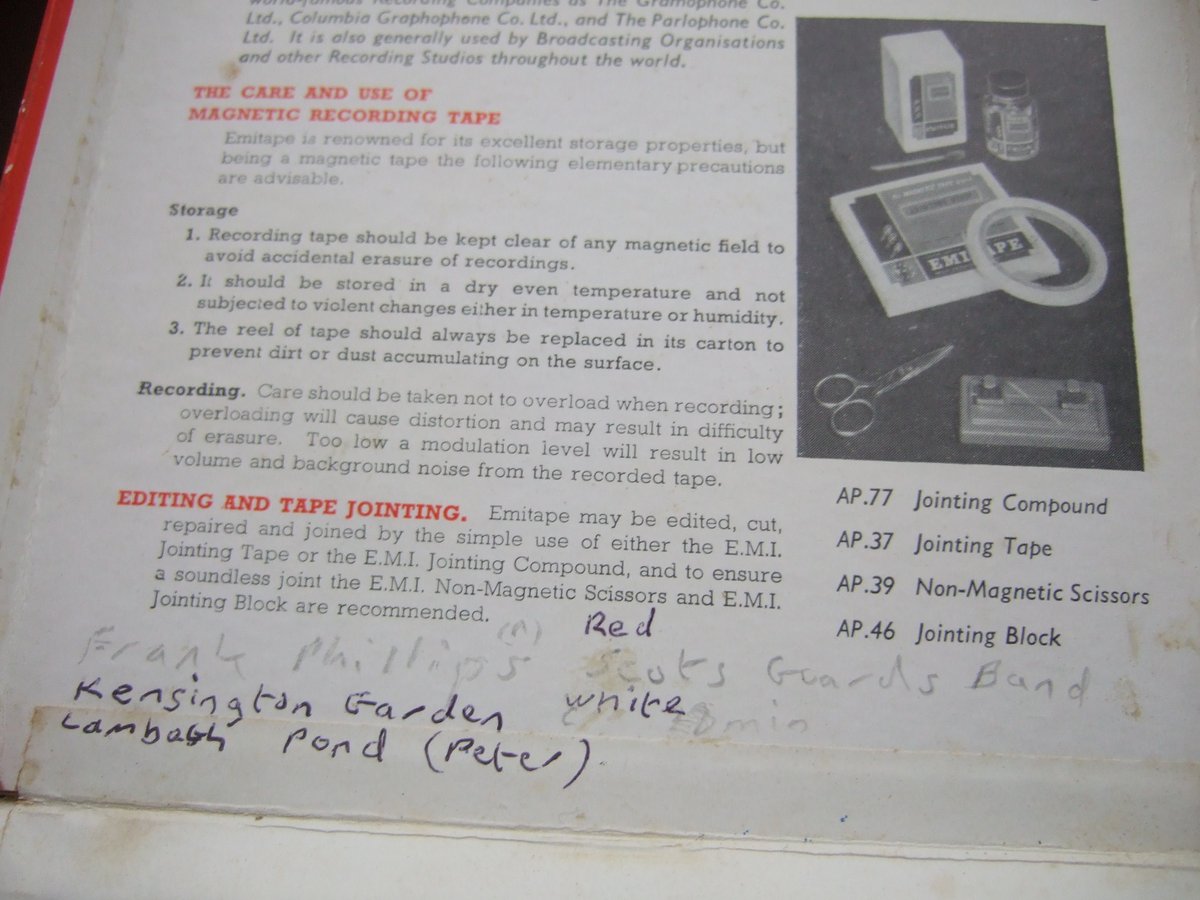 world-famous Recording Companies as The Gramophone Co.
Ltd., Columbia Graphophone Co. Ltd., and The Parlophone Co.
Ltd. It is also generally used by Broadcasting Organisations
and other Recording Studios throughout the world.
THE CARE AND USE OF
MAGNETIC RECORDING TAPE
Emitape is renowned for its excellent storage properties, but
being a magnetic tape the following elementary precautions
are advisable.
Storage
1. Recording tape should be kept clear of any magnetic field to
avoid accidental erasure of recordings.
2. It should be stored in a dry even temperature and not
subjected to violent changes either in temperature or humidity.
3. The reel of tape should always be replaced in its carton to
prevent dirt or dust accumulating on the surface.
Recording. Care should be taken not to overload when recording;
overloading will cause distortion and may result in difficulty
of erasure. Too low a modulation level will result in low
volume and background noise from the recorded tape.
EDITING AND TAPE JOINTING. Emitape may be edited, cut,
repaired and joined by the simple use of either the E.M.I.
Jointing Tape or the E.M.I. Jointing Compound, and to ensure
a soundless joint the E.M.I. Non-Magnetic Scissors and E.M.I.
Jointing Block are recommended.
EMITAPE
AP.77 Jointing Compound
AP.37 Jointing Tape
AP.39 Non-Magnetic Scissors
AP.46 Jointing Block
Red
Frank Phillips Scots Guards Band
Kensington Garden white
Pond (Peter)